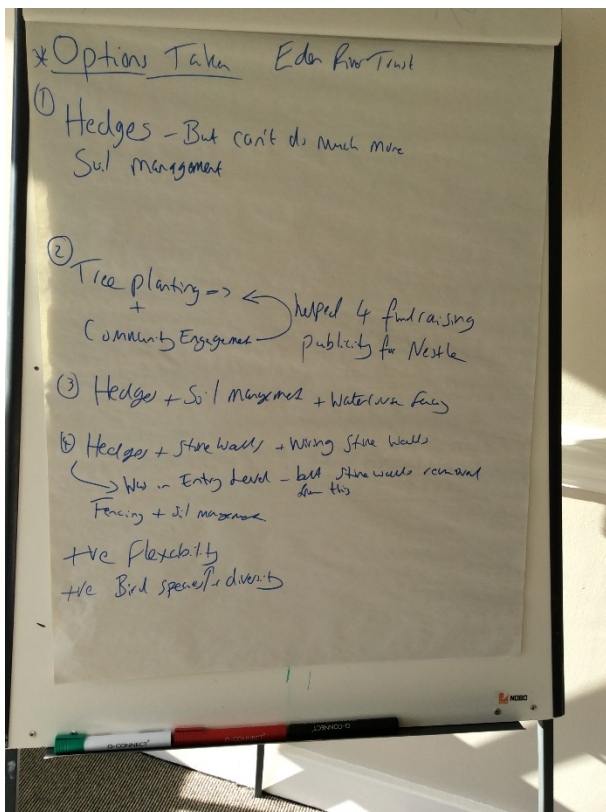 * Options Taken Eden River Trust
① Hedges - But can't do much more
Soil management
② Tree planting =>
+
Community Engagement
helped 4 fundraising
publicity for Nestle
③ Hedges + Soil management + Watercourse fencing
④ Hedges + Stone walls + wiring Stone walls
Was in Entry Level - but stone walls removed
from this
Fencing + Soil management
+ve Flexability
+ve Bird species ↑ diversity
NOBO
Q-CONNECT
Q-CONNECT
Q-CONNECT